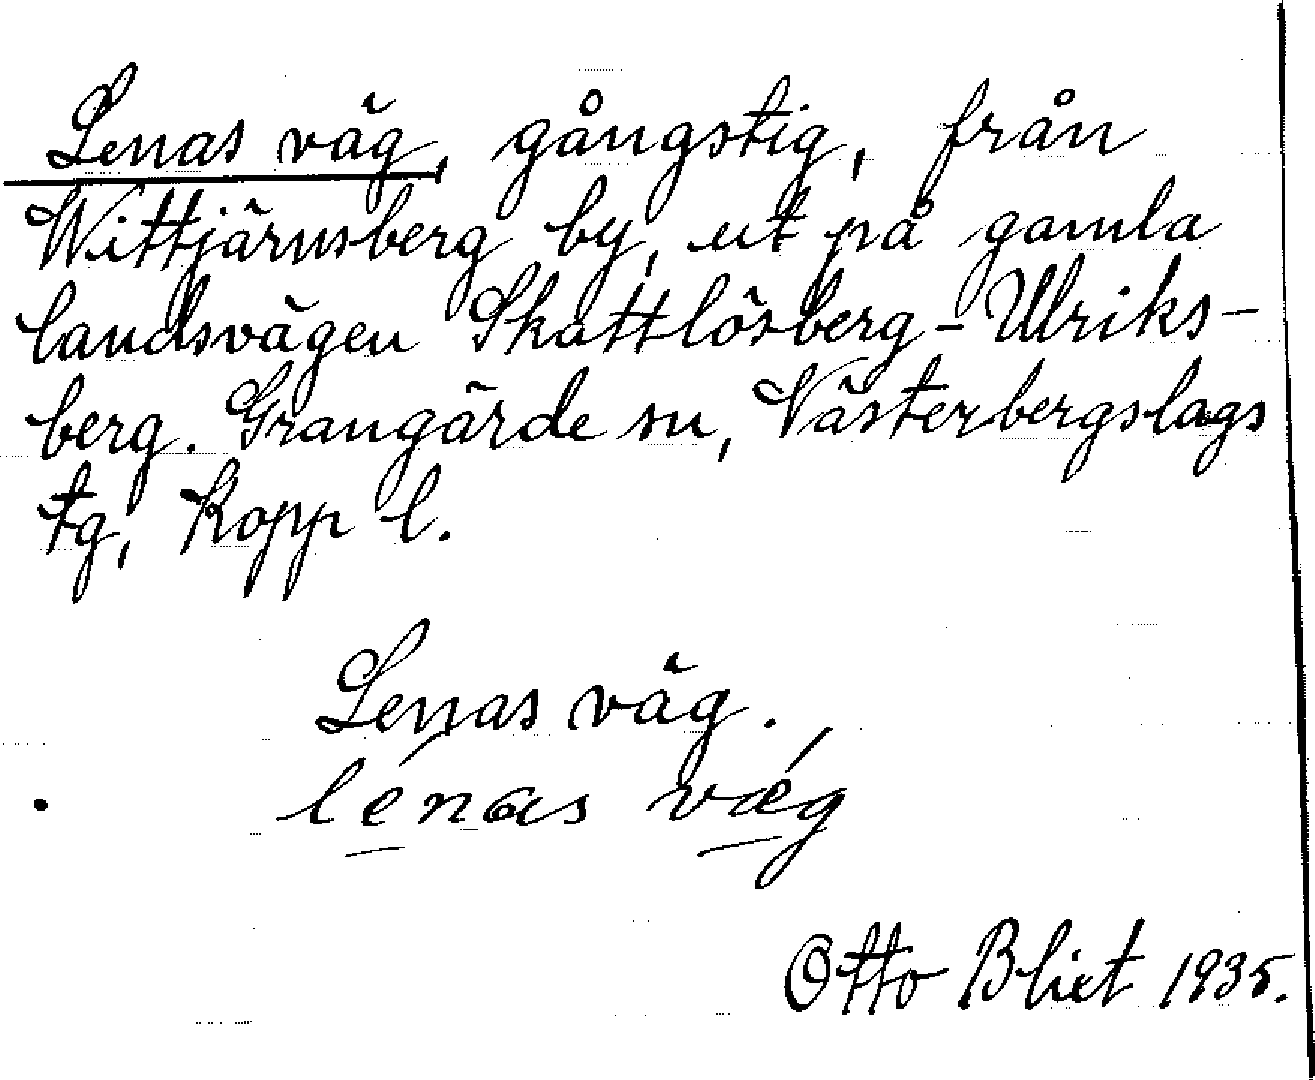 Lenas väg, gångstig, från
Wittjärnsberg by, ut på gamla
landsvägen Skattlösberg - Ulriks-
berg. Grangärde sn, Västerbergslags
tg, Kopp l.
Lenas väg.
lénas vǽg
Otto Blixt 1935.